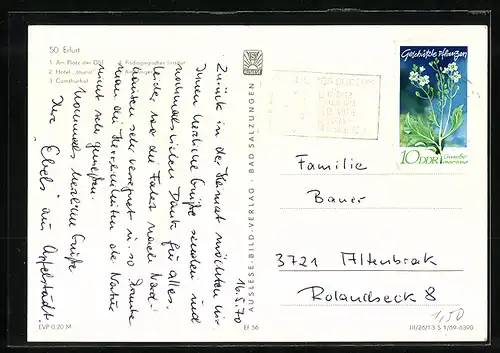 50 Erfurt
1 Am Platz der DSF
2 Hotel „Tourist“
3 Comthurhof
4 Pädagogisches Institut
Zurück in der Heimat möchten wir
Ihnen herzliche Grüße senden und
nochmals vielen Dank für alles.
Leider war die Fahrt nach
sehr verregnet u. so konnte
man die Herrlichkeiten der Natur
nicht sehr genießen.
Nochmals herzliche Grüße
Ihre Ebels aus Apfelstädt.
16.5.70
AUSLESE-BILD-VERLAG · BAD SALZUNGEN
EVP 0,20 M
Ef 56
Geschützte Pflanzen
10 DDR
Familie
Bauer
3721 Altenbrak
Rolandseck 8
III/26/13 S 1/69-6390
1,50